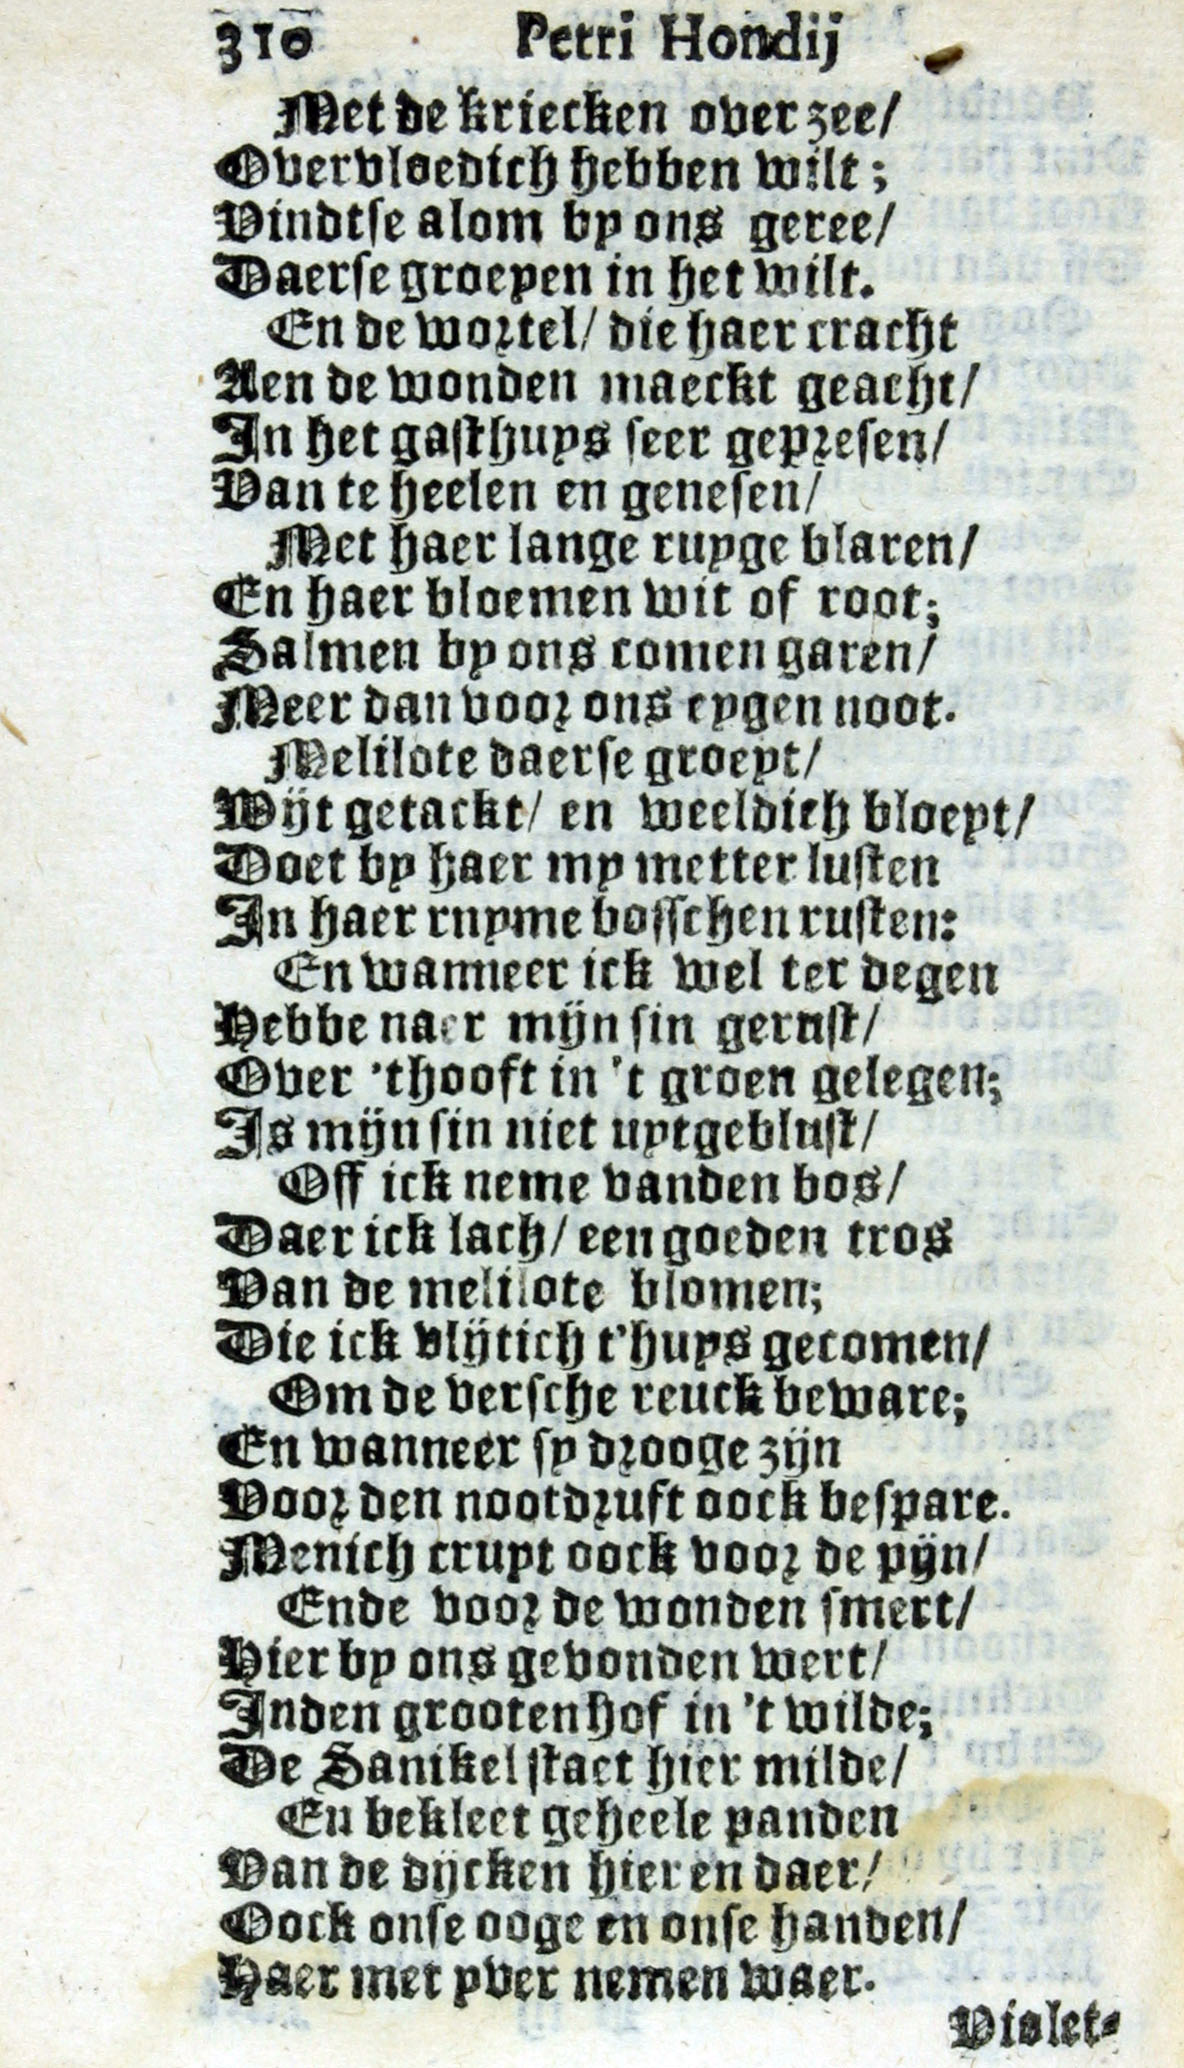 310 Petri Hondij
Met de kriecken over zee/
Overvloedich hebben wilt;
Vindtse alom by ons geree/
Daerse groeyen in het wilt.
En de wortel/ die haer cracht
Aen de wonden maeckt geacht/
In het gasthuys seer gepresen/
Van te heelen en genesen/
Met haer lange ruyge blaren/
En haer bloemen wit of root;
Salmen by ons comen garen/
Meer dan voor ons eygen noot.
Melilote daerse groeyt/
Wijt getackt/ en weeldich bloeyt/
Doet by haer my metter lusten
In haer ruyme bosschen rusten:
En wanneer ick wel ter degen
Hebbe naer mijn sin gerust/
Over 'thooft in 't groen gelegen;
Is mijn sin niet uytgeblust/
Off ick neme vanden bos/
Daer ick lach/ een goeden tros
Van de melilote blomen;
Die ick vlijtich t'huys gecomen/
Om de versche reuck beware;
En wanneer sy drooge zijn
Voor den nootdruft oock bespare.
Menich cruyt oock voor de pijn/
Ende voor de wonden smert/
Hier by ons gevonden wert/
Inden grooten hof in 't wilde;
De Sanikel staet hier milde/
En bekleet geheele panden
Van de dijcken hier en daer/
Oock onse ooge en onse handen/
Haer met yver nemen waer.
Violet-